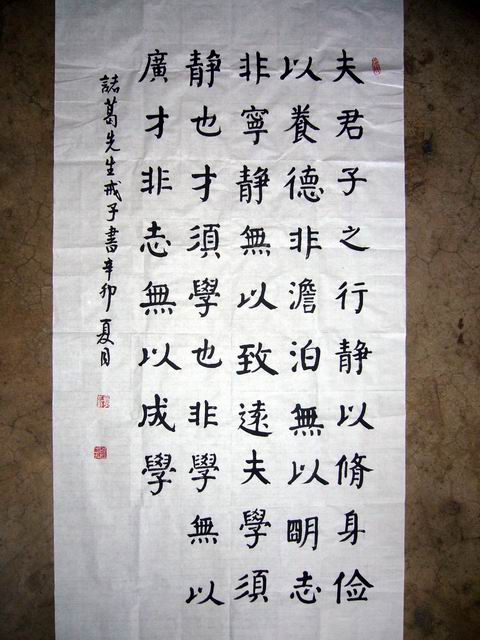 夫君子之行静以脩身俭
以養德非澹泊無以明志
非寧静無以致遠夫學須
静也才須學也非學無以
廣才非志無以成學
諸葛先生戒子書辛卯夏月